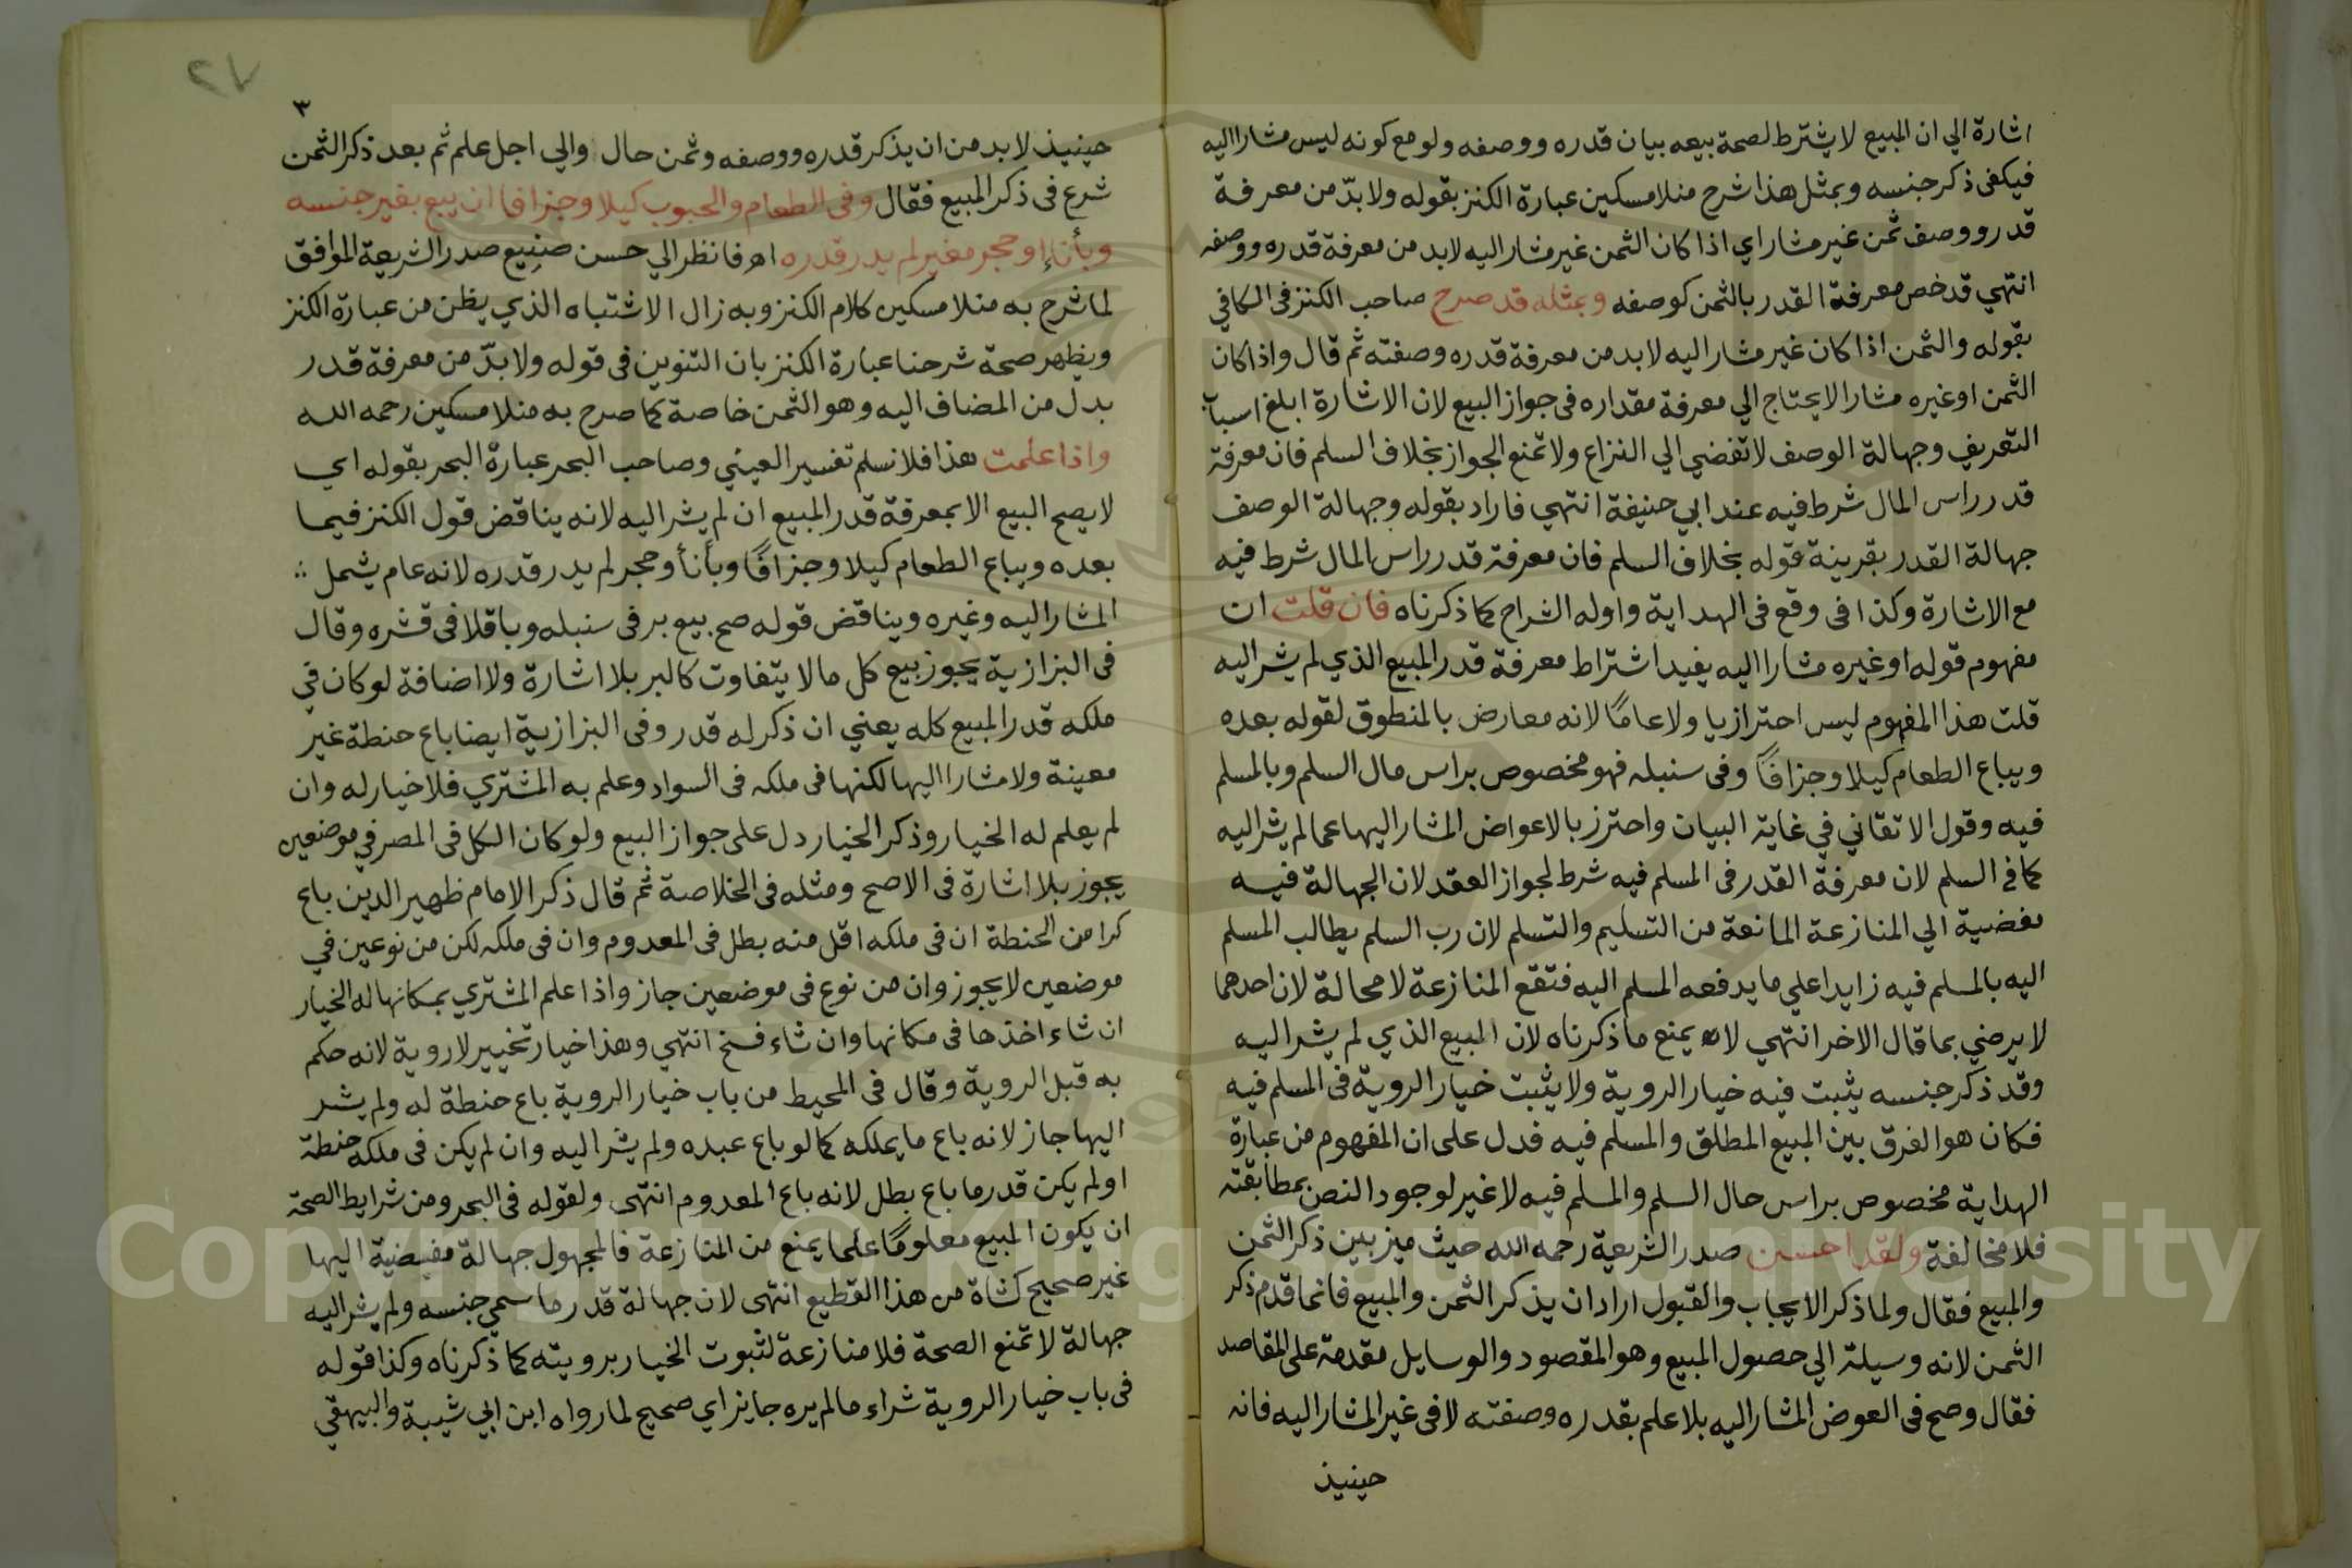 اشارة الي ان المبيع لا يشترط لصحة بيعه بيان قدره ووصفه ولو مع كونه ليس مشارا اليه
فيكفى ذكر جنسه وبمثل هذا شرح منلا مسكين عبارة الكنز بقوله ولا بدّ من معرفة
قدر ووصف ثمن غير مشار اي اذا كان الثمن غير مشار اليه لابد من معرفة قدره ووصفه
انتهي قد خص معرفة القدر بالثمن كوصفه وبمثله قد صرح صاحب الكنز فى الكافي
بقوله والثمن اذا كان غير مشار اليه لابد من معرفة قدره وصفته ثم قال واذا كان
الثمن اوغيره مشارا لا يحتاج الي معرفة مقداره فى جواز البيع لان الاشارة ابلغ اسباب
التعريف وجهالة الوصف لا تفضي الي النزاع ولا تمنع الجواز بخلاف السلم فان معرفة
قدر راس المال شرط فيه عند ابي حنيفة انتهي فاراد بقوله وجهالة الوصف
جهالة القدر بقرينة قوله بخلاف السلم فان معرفة قدر راس المال شرط فيه
مع الاشارة وكذا فى وقع فى الهداية واوله الشراح كما ذكرناه فان قلت ان
مفهوم قوله اوغيره مشارا اليه يفيد اشتراط معرفة قدر المبيع الذي لم يشر اليه
قلت هذا المفهوم ليس احترازيا ولا عامًا لانه معارض بالمنطوق لقوله بعده
ويباع الطعام كيلا وجزافًا وفى سنبله فهو مخصوص براس مال السلم وبالمسلم
فيه وقول الاتقاني في غاية البيان واحترز بالاعواض المشار اليها عما لم يشر اليه
كما في السلم لان معرفة القدر فى المسلم فيه شرط لجواز العقد لان الجهالة فيه
مفضية الي المنازعة المانعة من التسليم والتسلم لان رب السلم يطالب المسلم
اليه بالمسلم فيه زايدا علي ما يدفعه المسلم اليه فتقع المنازعة لا محالة لان احدهما
لا يرضي بما قال الاخر انتهي لا يمنع ما ذكرناه لان المبيع الذي لم يشر اليه
وقد ذكر جنسه يثبت فيه خيار الروية ولا يثبت خيار الروية فى المسلم فيه
فكان هو الفرق بين المبيع المطلق والمسلم فيه فدل على ان المفهوم من عبارة
الهداية مخصوص براس حال السلم والمسلم فيه لا غير لوجود النص بمطابقته
فلا مخالفة ولقد احسن صدر الشريعة رحمه الله حيث ميز بين ذكر الثمن
والمبيع فقال ولما ذكر الايجاب والقبول اراد ان يذكر الثمن والمبيع فانما قدم ذكر
الثمن لانه وسيلة الي حصول المبيع وهو المقصود والوسايل مقدمة على المقاصد
فقال وصح فى العوض المشار اليه بلا علم بقدره وصفته لا فى غير المشار اليه فانه
حينيذ
٢٧
٣
حينيذ لابد من ان يذكر قدره ووصفه وثمن حال والي اجل علم ثم بعد ذكر الثمن
شرع فى ذكر المبيع فقال وفى الطعام والحبوب كيلا وجزافا ان بيع بغير جنسه
وبأناء او حجر معير لم يدر قدره اه فانظر الي حسن صنيع صدر الشريعة الموافق
لما شرح به منلا مسكين كلام الكنز وبه زال الاشتباه الذي يظن من عبارة الكنز
ويظهر صحة شرحنا عبارة الكنز بان التنوين فى قوله ولا بدّ من معرفة قدر
بدل من المضاف اليه وهو الثمن خاصة كما صرح به منلا مسكين رحمه الله
واذا علمت هذا فلا نسلم تفسير العيني وصاحب البحر عبارة البحر بقوله اي
لا يصح البيع الا بمعرفة قدر المبيع ان لم يشر اليه لانه يناقض قول الكنز فيما
بعده ويباع الطعام كيلا وجزافًا وبأنأ وحجر لم يدر قدره لانه عام يشمل
المشار اليه وغيره ويناقض قوله صح بيع بر فى سنبله وباقلا فى قشره وقال
فى البزازية يجوز بيع كل ما لا يتفاوت كالبر بلا اشارة ولا اضافة لو كان في
ملكه قدر المبيع كله يعني ان ذكر له قدر وفى البزازية ايضا باع حنطة غير
معينة ولا مشارا اليها لكنها فى ملكه فى السواد وعلم به المشتري فلا خيار له وان
لم يعلم له الخيار وذكر الخيار دل على جواز البيع ولو كان الكل فى المصر في موضعين
يجوز بلا اشارة فى الاصح ومثله فى الخلاصة ثم قال ذكر الامام ظهير الدين باع
كرا من الحنطة ان فى ملكه اقل منه بطل فى المعدوم وان فى ملكه لكن من نوعين في
موضعين لا يجوز وان من نوع فى موضعين جاز واذا علم المشتري بمكانها له الخيار
ان شاء اخذها فى مكانها وان شاء فسخ انتهي وهذا خيار تخيير لا روية لانه حكم
به قبل الروية وقال فى المحيط من باب خيار الروية باع حنطة له ولم يشر
اليها جاز لانه باع ما يملكه كما لو باع عبده ولم يشر اليه وان لم يكن فى ملكه حنطة
اولم يكن قدر ما باع بطل لانه باع المعدوم انتهى ولقوله فى البحر ومن شرايط الصحة
ان يكون المبيع معلومًا علما يمنع من المنازعة فالمجهول جهالة مفضية اليها
غير صحيح كشاة من هذا القطيع انتهى لان جهالة قدر ما سمي جنسه ولم يشر اليه
جهالة لا تمنع الصحة فلا منازعة لثبوت الخيار برويته كما ذكرناه وكذا قوله
فى باب خيار الروية شراء ما لم يره جايز اي صحيح لما رواه ابن ابي شيبة والبيهقي
Copyright © King Saud University